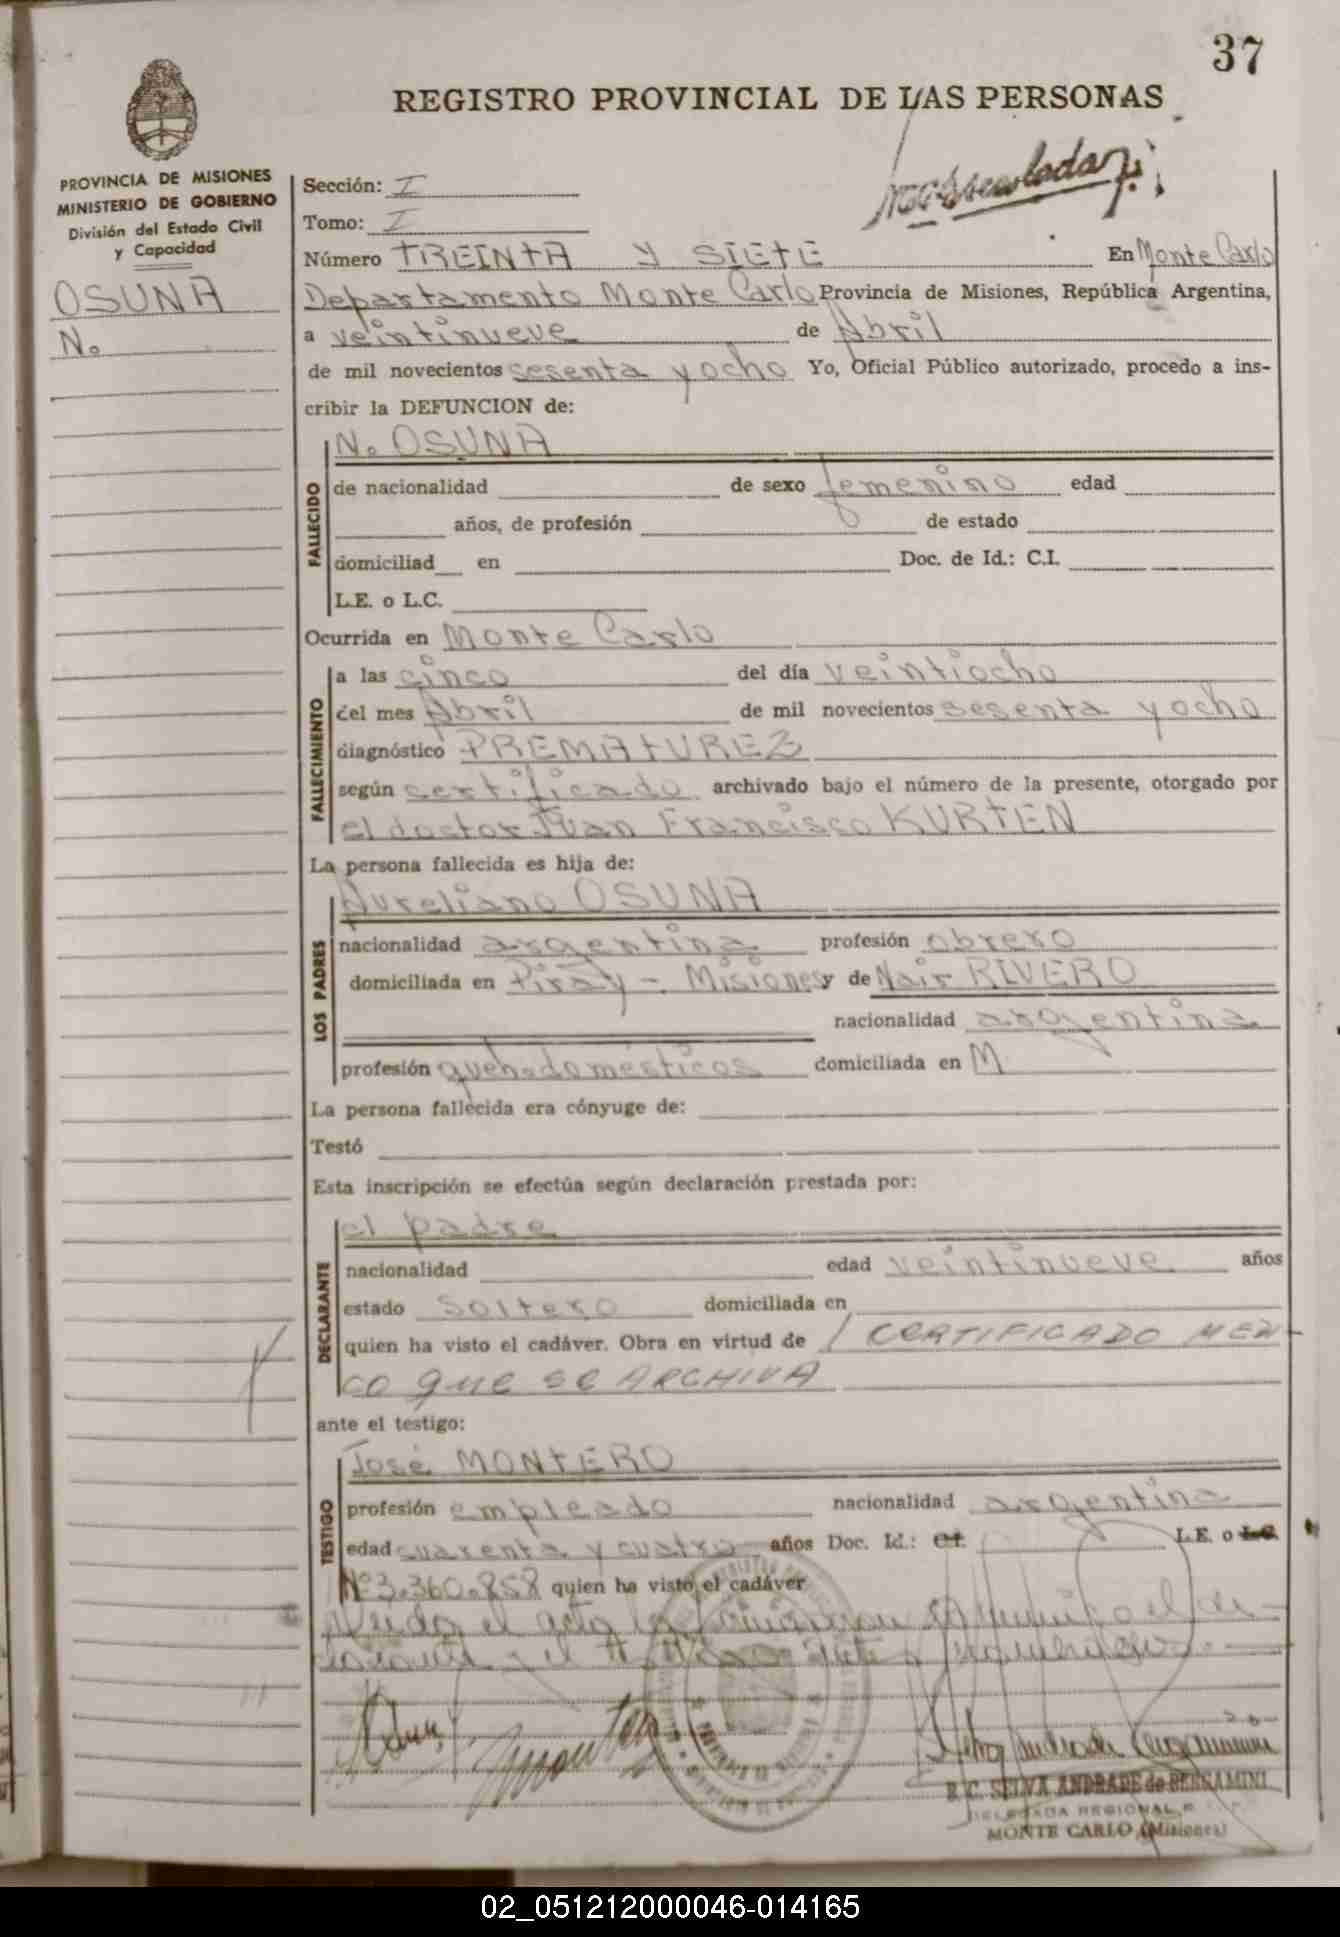 37
REGISTRO PROVINCIAL DE LAS PERSONAS
PROVINCIA DE MISIONES
MINISTERIO DE GOBIERNO
División del Estado Civil
y Capacidad
OSUNA
N.
Sección: I
Tomo: I
Número TREINTA Y SIETE En Monte Carlo
Departamento Monte Carlo Provincia de Misiones, República Argentina,
a veintinueve de Abril
de mil novecientos sesenta y ocho Yo, Oficial Público autorizado, procedo a ins-
cribir la DEFUNCION de:
N. OSUNA
FALLECIDO
de nacionalidad de sexo femenino edad
años, de profesión de estado
domiciliad en Doc. de Id.: C.I.
L.E. o L.C.
Ocurrida en Monte Carlo
FALLECIMIENTO
a las cinco del día veintiocho
del mes Abril de mil novecientos sesenta y ocho
diagnóstico PREMATUREZ
según certificado archivado bajo el número de la presente, otorgado por
el doctor Juan Francisco KURTEN
La persona fallecida es hija de:
LOS PADRES
Aureliano OSUNA
nacionalidad argentina profesión obrero
domiciliada en Piray - Misiones y de Nair RIVERO
nacionalidad argentina
profesión queh. domésticos domiciliada en M
La persona fallecida era cónyuge de:
Testó
Esta inscripción se efectúa según declaración prestada por:
DECLARANTE
el padre
nacionalidad edad veintinueve años
estado soltero domiciliada en
quien ha visto el cadáver. Obra en virtud de / CERTIFICADO
CO que se ARCHIVA
ante el testigo:
TESTIGO
José MONTERO
profesión empleado nacionalidad argentina
edad cuarenta y cuatro años Doc. Id.: C.I. L.E. o L.C.
Nº 3.360.858 quien ha visto el cadáver
el acto
B. C. SELVA ANDRADE de BERGAMINI
DELEGADA REGIONAL
MONTE CARLO (Misiones)
02_051212000046-014165